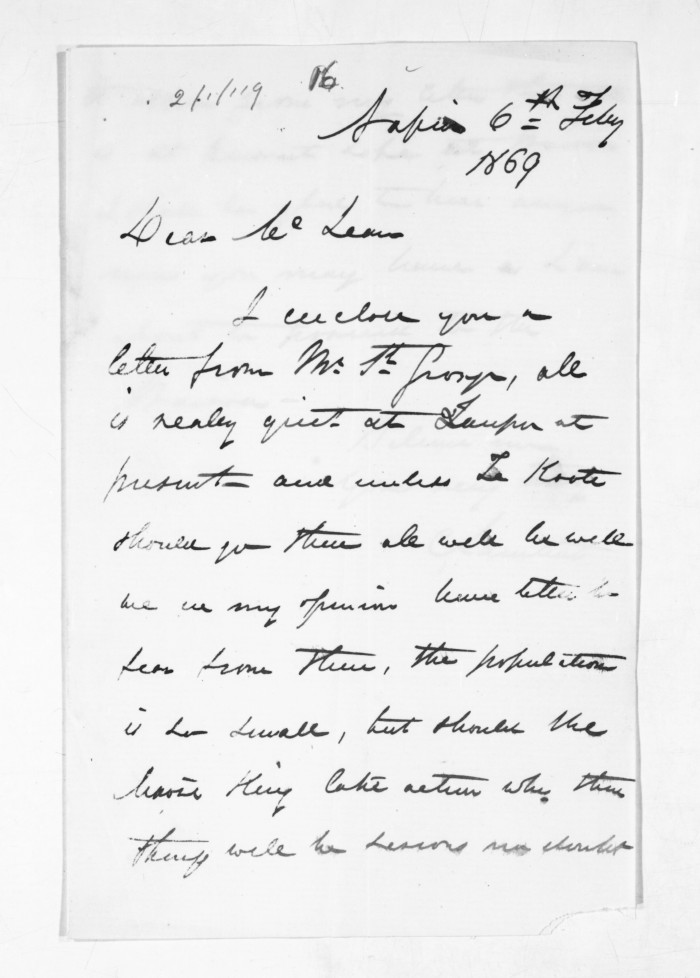 2/1/119
16
Napier 6th Feby
1869
Dear McLean
I enclose you a
letter from Mr. St. George, all
is really quiet at Taupo at
present and unless Te Kooti
should go there all will be well
we in my opinion have little to
fear from there, the population
is so small, but should the
Maori King take action why then
things will be serious no doubt